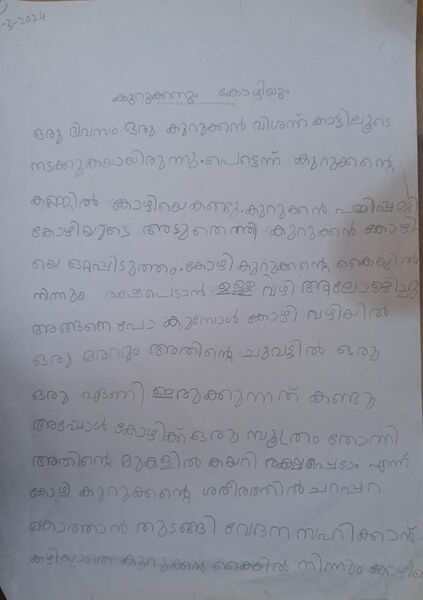 -3-2024
കുറുക്കനും കോഴിയും
ഒരു ദിവസം ഒരു കുറുക്കൻ വിശന്ന് കാട്ടിലൂടെ
നടക്കുകയായിരുന്നു. പെട്ടെന്ന് കുറുക്കന്റെ
കണ്ണിൽ കോഴിയെ കണ്ടു. കുറുക്കൻ പമ്മിപമ്മി
കോഴിയുടെ അടുതെത്തി കുറുക്കൻ കോഴി
യെ ഒറ്റപിടുത്തം. കോഴി കുറുക്കന്റെ കൈയ്യിൽ
നിന്നും രക്ഷപെടാൻ ഉള്ള വഴി ആലോജിച്ചു
അങ്ങനെ പോ കുമ്പോൾ കോഴി വഴിയിൽ
ഒരു മരവും അതിന്റെ ചുവട്ടിൽ ഒരു
ഒരു ഏണി ഇരുക്കുന്നത് കണ്ടു
അപ്പോൾ കോഴിക്ക് ഒരു സൂത്രം തോന്നി
അതിന്റെ മുകളിൽ കയറി രക്ഷപ്പെടാം എന്ന്
കോഴി കുറുക്കന്റെ ശരീരത്തിൽ ചറപറ
കൊത്താൻ തുടങ്ങി വേദന സഹിക്കാൻ
കഴിയാതെ കുറുക്കൻ കൈയിൽ നിന്നും